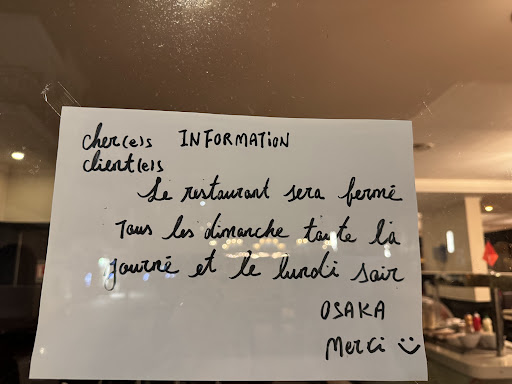 cher(e)s INFORMATION
client(e)s
Le restaurant sera fermé
Tous les dimanche toute la
journé et le lundi soir
OSAKA
Merci :)